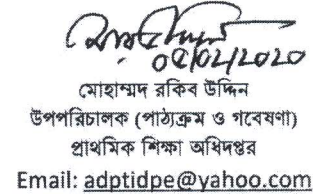 ০৫/০২/২০২০
মোহাম্মদ রকিব উদ্দিন
উপপরিচালক (পাঠ্যক্রম ও গবেষণা)
প্রাথমিক শিক্ষা অধিদপ্তর
Email: adptidpe@yahoo.com